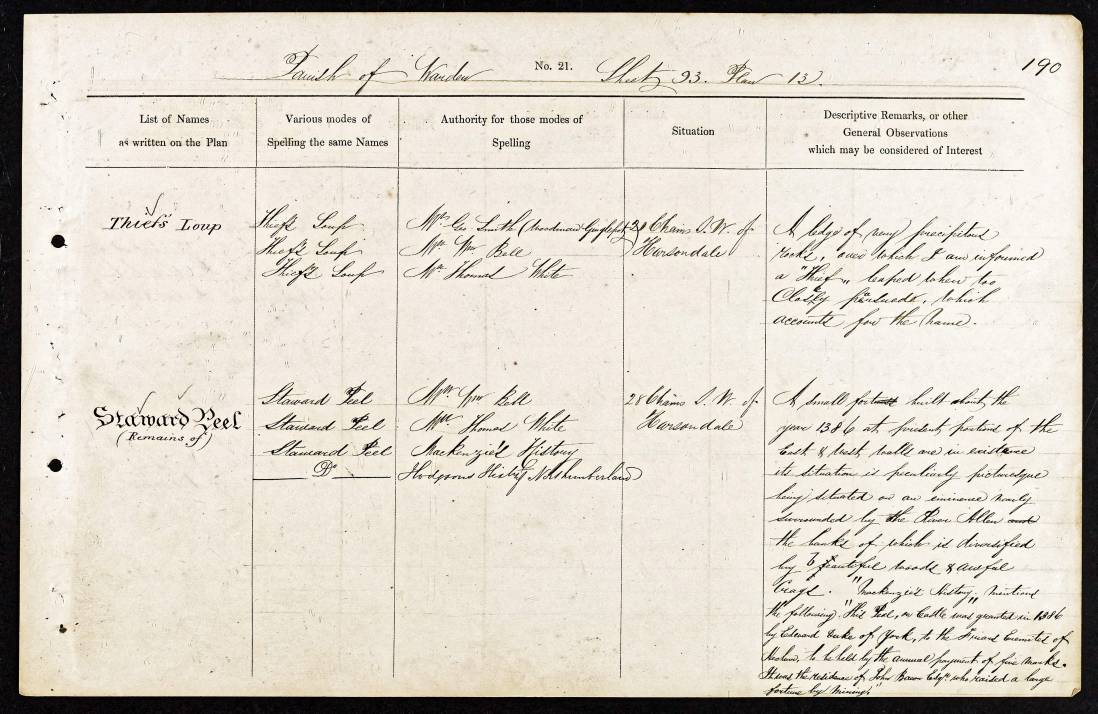 190
Parish of Warden No. 21. Sheet 93. Plan 13.
List of Names
as written on the Plan
Various modes of
Spelling the same Names
Authority for those modes of
Spelling
Situation
Descriptive Remarks, or other
General Observations
which may be considered of Interest
Thief's Loup
Thief's Loup
Thief's Loup
Thief's Loup
Mr. Geo Smith (Woodman
Mr. Wm Bell
Mr. Thomas White
28 Chains S.W. of
Harsondale
A ledge of very precipitous
rocks, over which I am informed
a "Thief" leaped when too
Closely persuade, which
accounts for the Name.
Staward Peel
(Remains of)
Staward Peel
Staward Peel
Staward Peel
Do
Mr. Wm Bell
Mr. Thomas White
Mackenzie's History
Hodgsons Histy of Northumberland
28 Chains S.W. of
Harsondale
A small built about the
year 1386 at present portions of the
East & West walls are in existence
its situation is peculiarly picturesque
being situated on an eminence nearly
surrounded by the River Allen and
the banks of which is diversified
by beautiful woods & awful
Crags. "Mackenzie's History" mentions
the following "This Peel, or Castle was granted in 1386
by Edward Duke of York, to the Friars Eremites of
Hexham, to be held by the annual payment of five marks.
It was the residence of John Bacon Esqr. who raised a large
fortune by Mining"